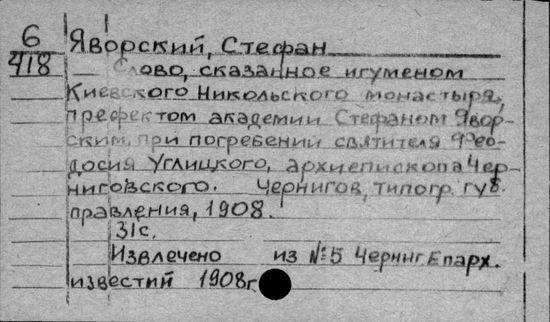 6
418
Яворский, Стефан
Слово, сказанное игуменом
Киевского Никольского монастыря,
префектом академии Стефаном Явор-
ским, при погребении святителя Фео-
досия Углицкого, архиепископа Чер-
ниговского. Чернигов, типогр. губ.
правления, 1908.
31с.
Извлечено из №5 Черниг Епарх.
известий 1908г.